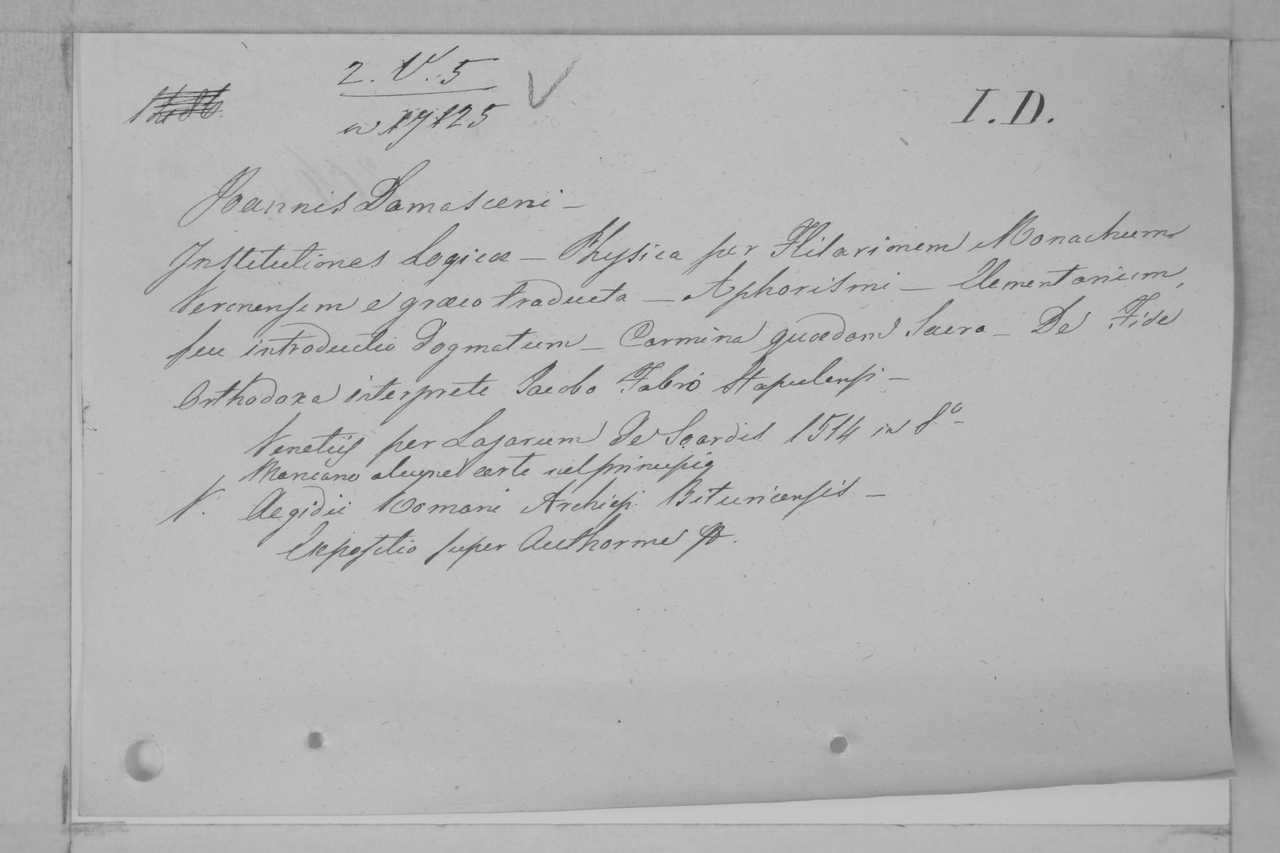 2. V. 5
I.D.
n 17125
Joannis Damasceni –
Institutiones Logicæ – Physica per Hilarionem Monachum
Veronensem e græco traducta – Aphorismi – Elementarium,
seu introductio Dogmatum – Carmina quædam Sacra – De Fide
Orthodoxa interprete Jacobo Fabro Stapulensi –
Venetiis per Lazarum De Soardis 1514 in 8º –
Mancano alcune carte nel principio
V. Aegidii Romani Archiepi. Bituricensis –
Expositio super Authorme